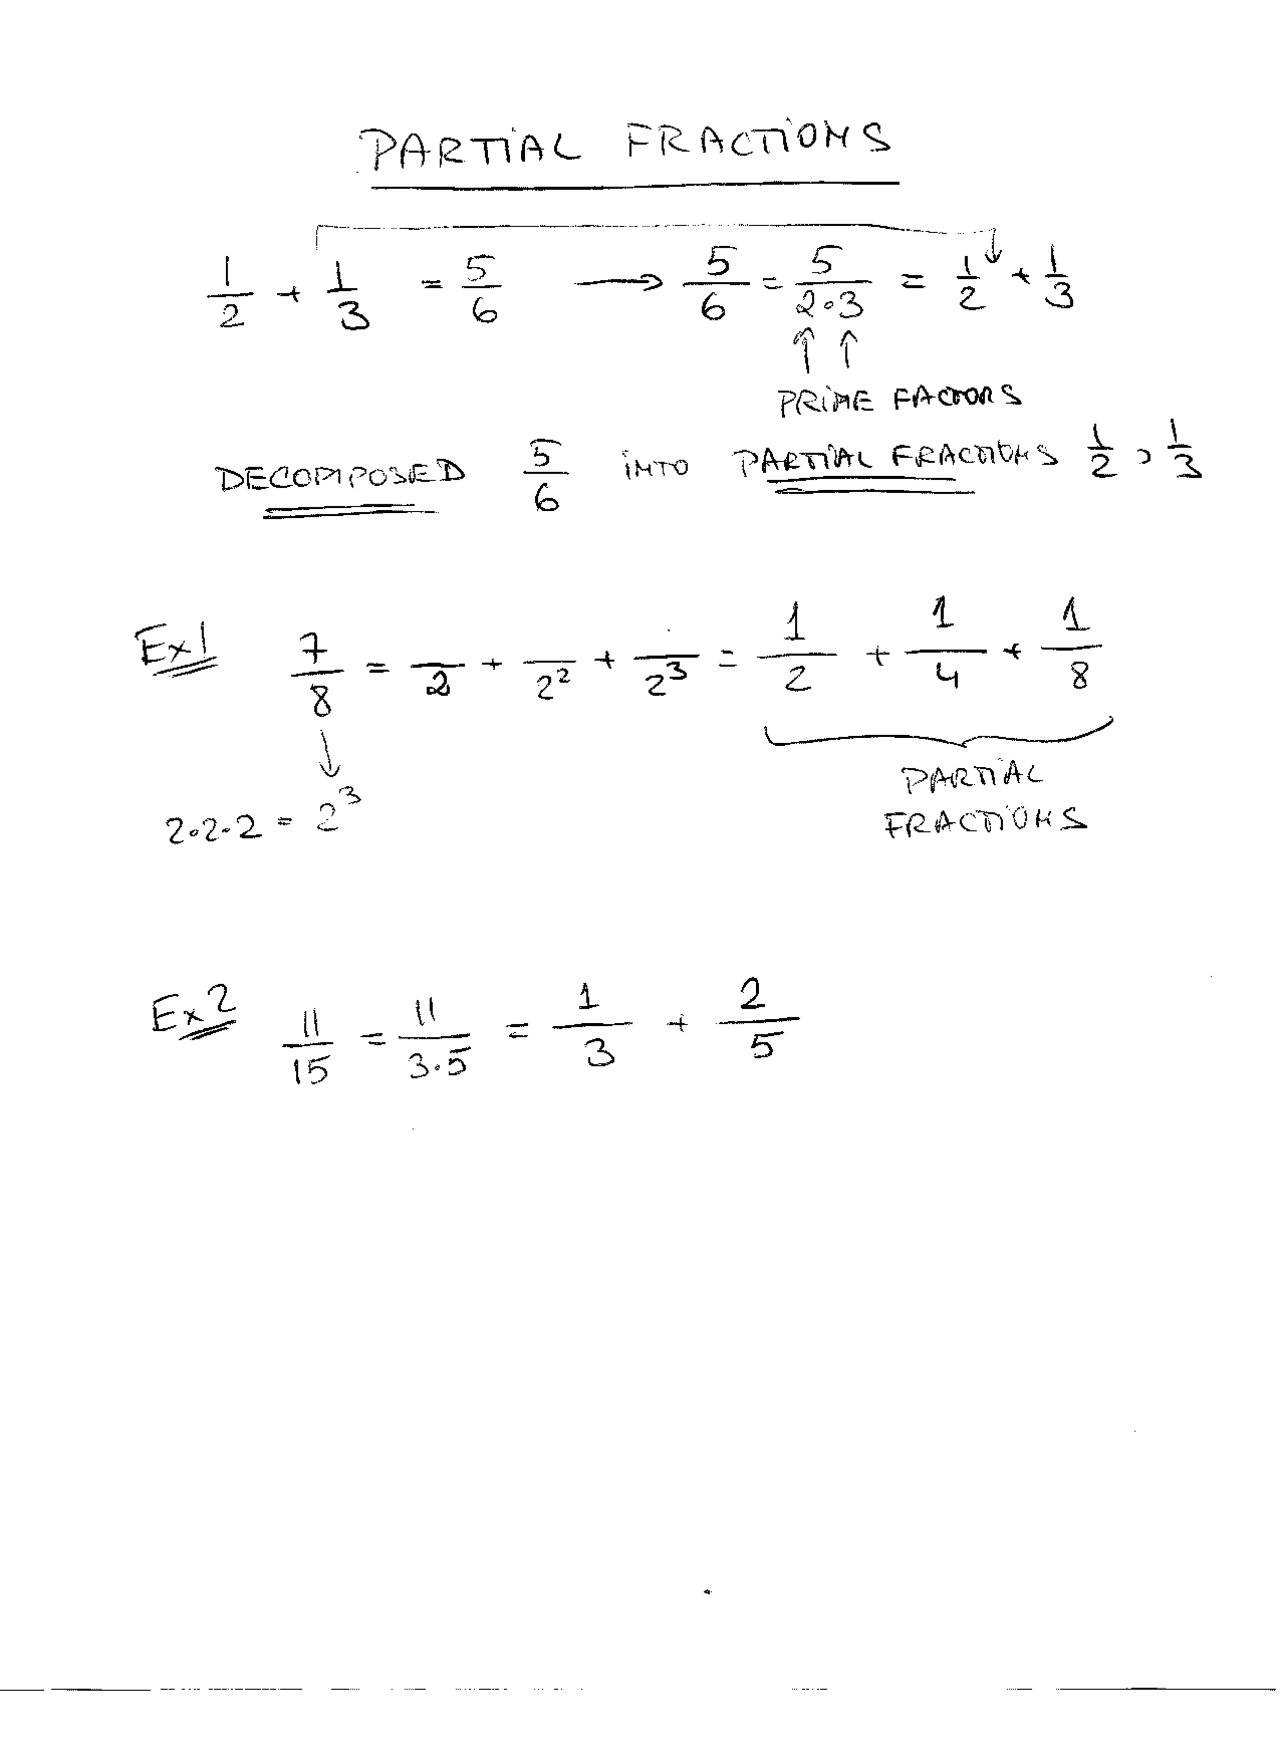 PARTIAL FRACTIONS
1/2 + 1/3 = 5/6 → 5/6 = 5/(2·3) = 1/2 + 1/3
↑ ↑
PRIME FACTORS
DECOMPOSED 5/6 INTO PARTIAL FRACTIONS 1/2 , 1/3
Ex1 7/8 = /2 + /2² + /2³ = 1/2 + 1/4 + 1/8
↓
2·2·2 = 2³
PARTIAL
FRACTIONS
Ex2 11/15 = 11/(3·5) = 1/3 + 2/5